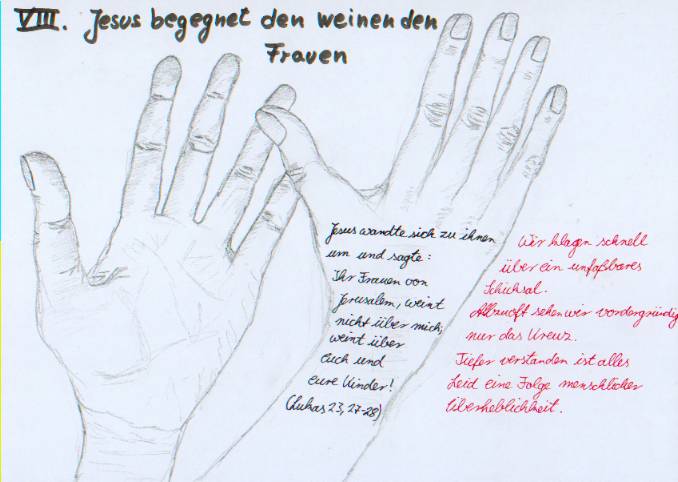 VIII. Jesus begegnet den weinenden
Frauen
Jesus wandte sich zu ihnen
um und sagte:
Ihr Frauen von
Jerusalem, weint
nicht über mich;
weint über
euch und
eure Kinder!
(Lukas 23, 27-28)
Wir klagen schnell
über ein unfaßbares
Schicksal.
Allzuoft sehen wir vordergründig
nur das Kreuz.
Tiefer verstanden ist alles
Leid eine Folge menschlicher
Überheblichkeit.